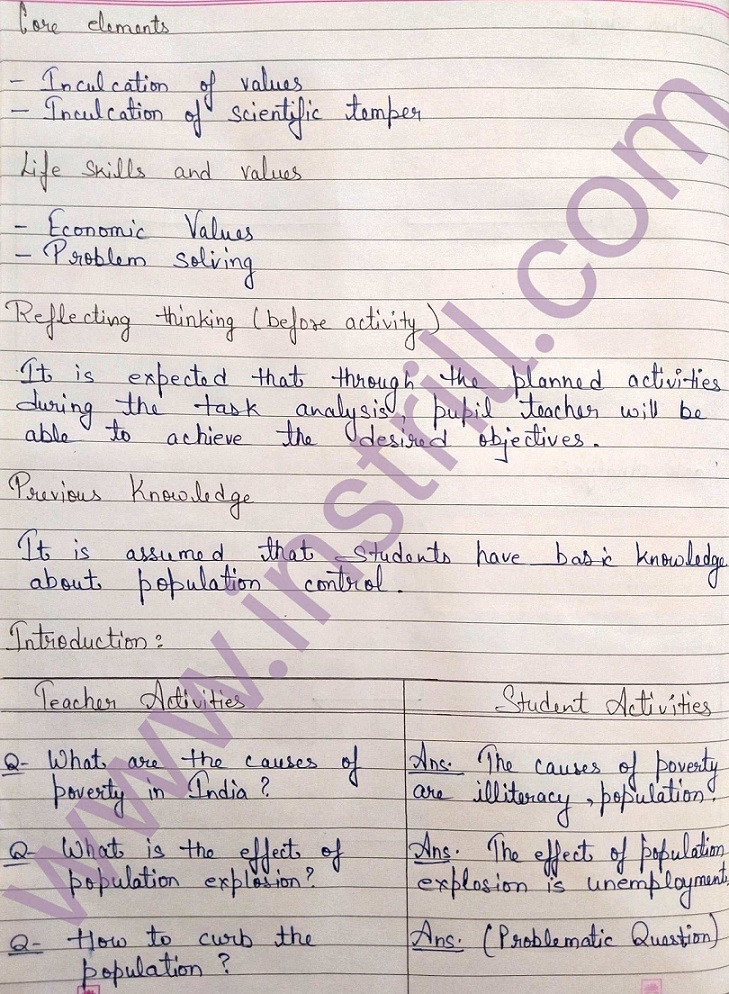 Core elements
- Inculcation of values
- Inculcation of scientific temper
Life skills and values
- Economic Values
- Problem solving
Reflecting thinking (before activity)
It is expected that through the planned activities
during the task analysis, pupil teacher will be
able to achieve the desired objectives.
Previous Knowledge
It is assumed that students have basic knowledge
about population control.
Introduction:
Teacher Activities
Student Activities
Q- What are the causes of
poverty in India?
Ans. The causes of poverty
are illiteracy, population.
Q- What is the effect of
population explosion?
Ans. The effect of population
explosion is unemployment.
Q- How to curb the
population?
Ans. (Problematic Question)
www.instrill.com